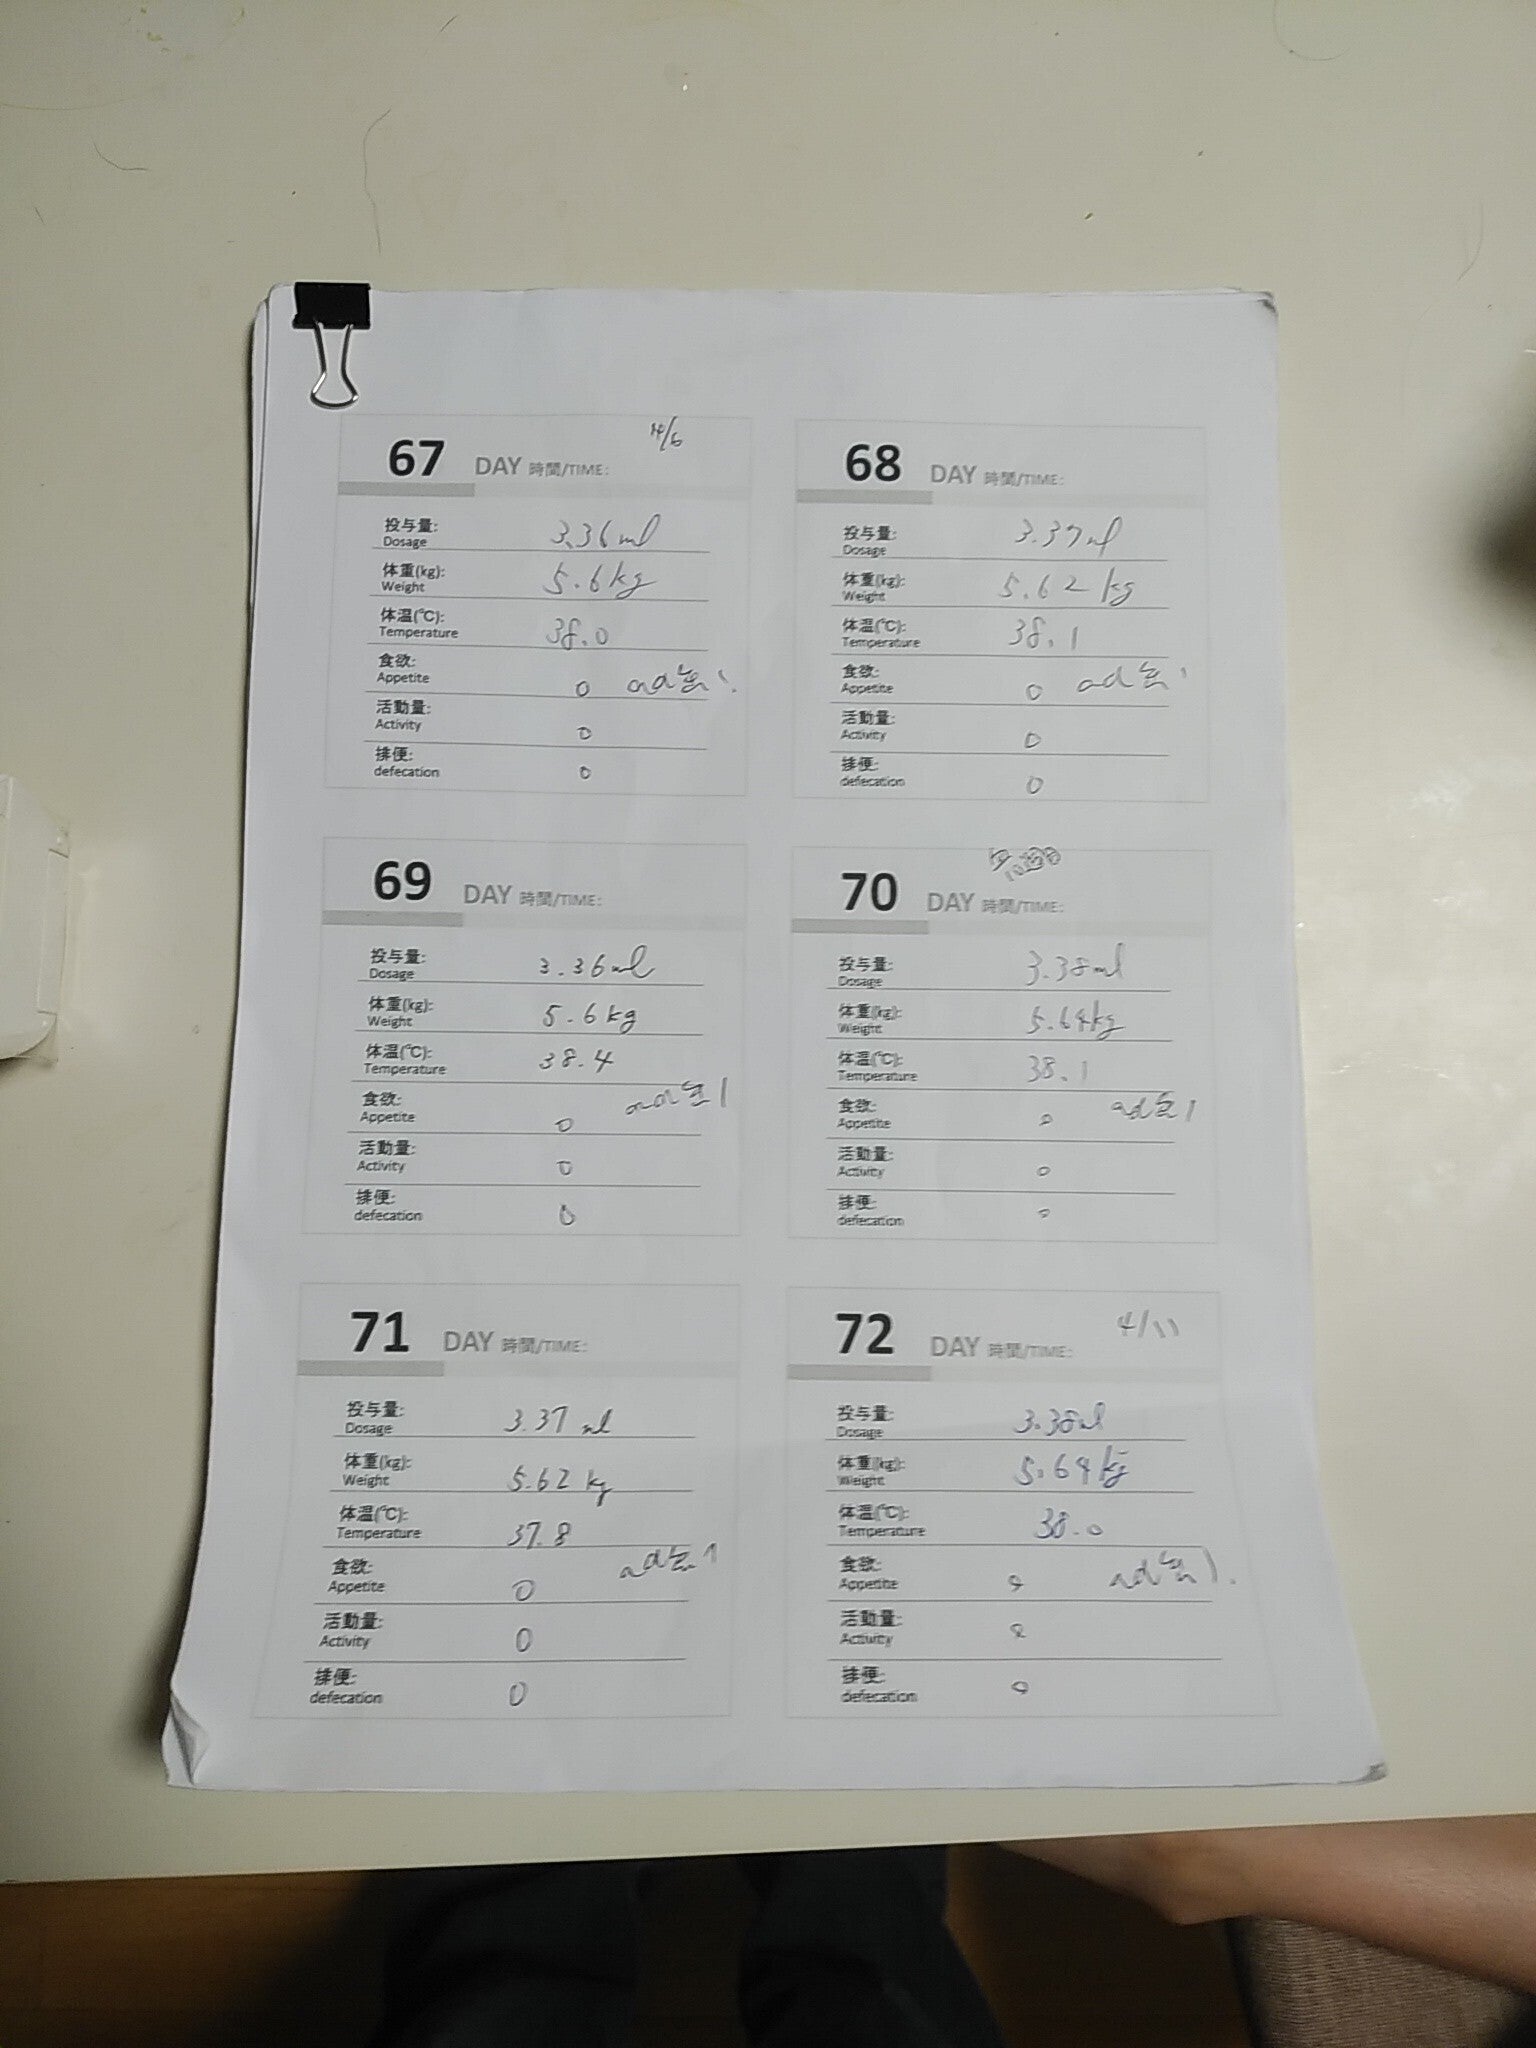 67 DAY 時間/TIME: 4/6
投与量: Dosage 3.36ml
体重(kg): Weight 5.6kg
体温(℃): Temperature 38.0
食欲: Appetite 0 ad缶1
活動量: Activity 0
排便: defecation 0
68 DAY 時間/TIME:
投与量: Dosage 3.37ml
体重(kg): Weight 5.62kg
体温(℃): Temperature 38.1
食欲: Appetite 0 ad缶1
活動量: Activity 0
排便: defecation 0
69 DAY 時間/TIME:
投与量: Dosage 3.36ml
体重(kg): Weight 5.6kg
体温(℃): Temperature 38.4
食欲: Appetite 0 ad缶1
活動量: Activity 0
排便: defecation 0
70 DAY 時間/TIME:
投与量: Dosage 3.38ml
体重(kg): Weight 5.64kg
体温(℃): Temperature 38.1
食欲: Appetite 0 ad缶1
活動量: Activity 0
排便: defecation 0
71 DAY 時間/TIME:
投与量: Dosage 3.37ml
体重(kg): Weight 5.62kg
体温(℃): Temperature 37.8
食欲: Appetite 0 ad缶1
活動量: Activity 0
排便: defecation 0
72 DAY 時間/TIME: 4/11
投与量: Dosage 3.38ml
体重(kg): Weight 5.64kg
体温(℃): Temperature 38.0
食欲: Appetite 0 ad缶1.
活動量: Activity 0
排便: defecation 0